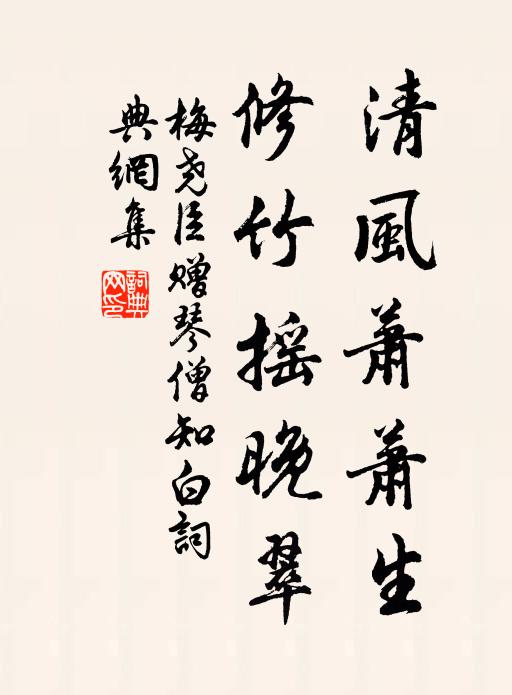 清風蕭蕭生
修竹摇晚翠
梅尧臣赠琴僧知白詞
典網集
詞典網印